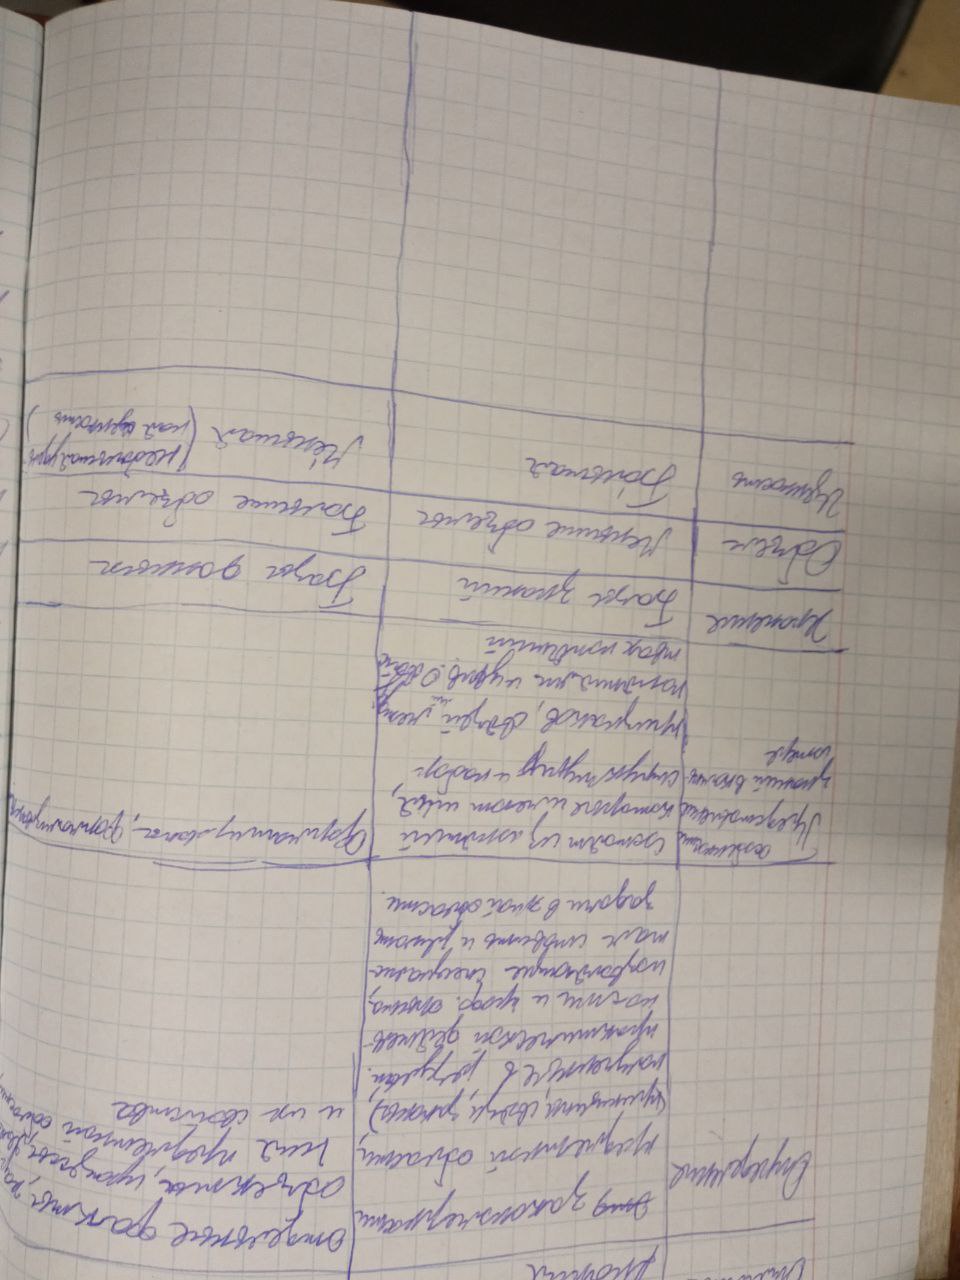 Знания
Определение
Это закономерности
предметной области,
(принципы, связи, законы),
полученные в результ.
практической деятель-
ности и проф. опыта,
позволяющие специалис-
там ставить и решать
задачи в этой области.
отдельные факты,
объекты, процессы,
ния предметной области,
и их свойства
особенности
Представления
знаний в компь-
ютере
состоят из понятий
которые имеют имя,
структуру и набор
признаков, связей между
понятиями и о свойс
твах понятий
Форматированы, формализованы
Хранение
Базы знаний
Базы данных
Объем
Меньше объемы
Больше объемы
Ценность
Бо́льшая
Ме́ньшая (небольшая удель-
ная ценность)